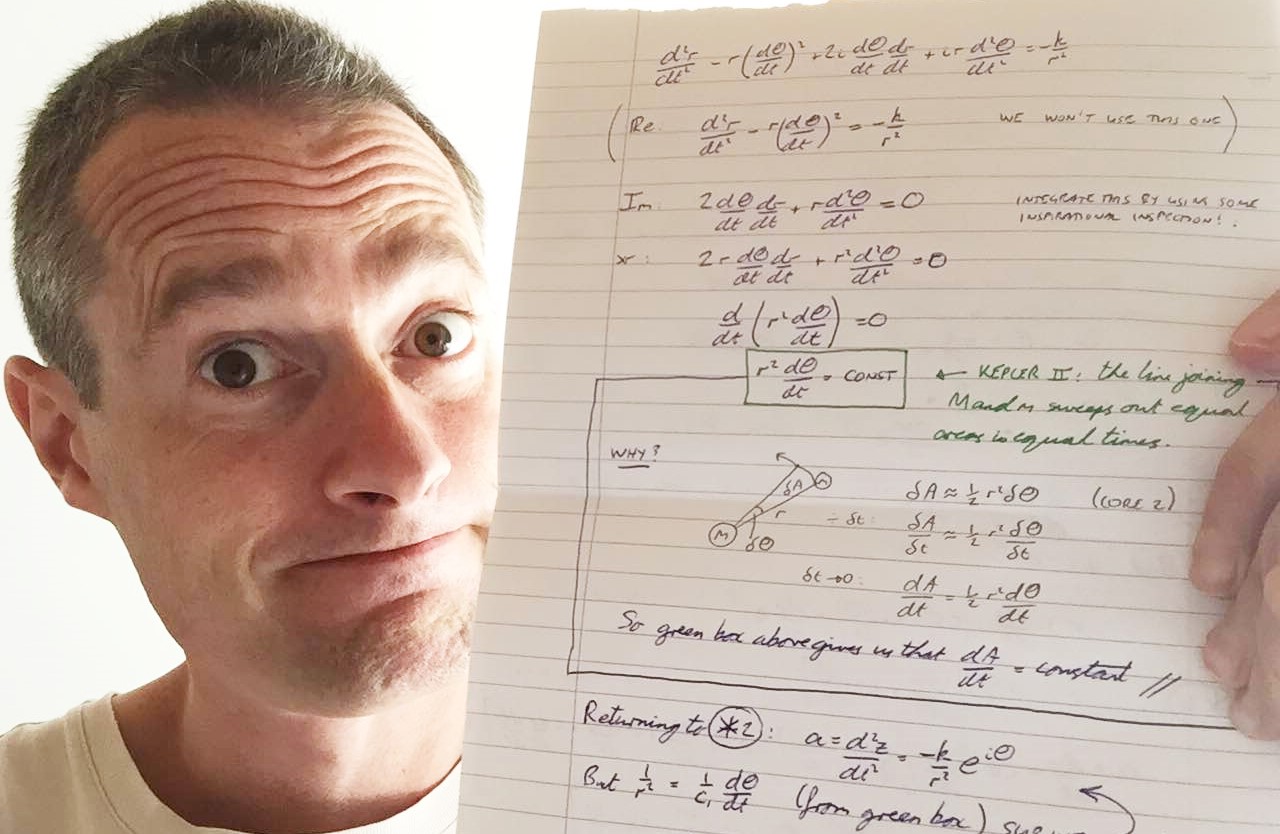 d²r/dt² - r(dθ/dt)² + 2i dθ/dt dr/dt + ir d²θ/dt² = -k/r²
(Re: d²r/dt² - r(dθ/dt)² = -k/r² WE WON'T USE THIS ONE)
Im: 2 dθ/dt dr/dt + r d²θ/dt² = 0 INTEGRATE THIS BY USING SOME
INSPIRATIONAL INSPECTION!
×r: 2r dθ/dt dr/dt + r² d²θ/dt² = 0
d/dt (r² dθ/dt) = 0
r² dθ/dt = CONST ← KEPLER II: the line joining
M and m sweeps out equal
areas in equal times.
WHY?
δA
r
M
m
δθ
δA ≈ ½ r² δθ (CORE 2)
÷ δt: δA/δt ≈ ½ r² δθ/δt
δt → 0: dA/dt = ½ r² dθ/dt
So green box above gives us that dA/dt = constant //
Returning to *2: a = d²z/dt² = -k/r² e^{iθ}
But 1/r² = 1/c₁ dθ/dt (from green box)